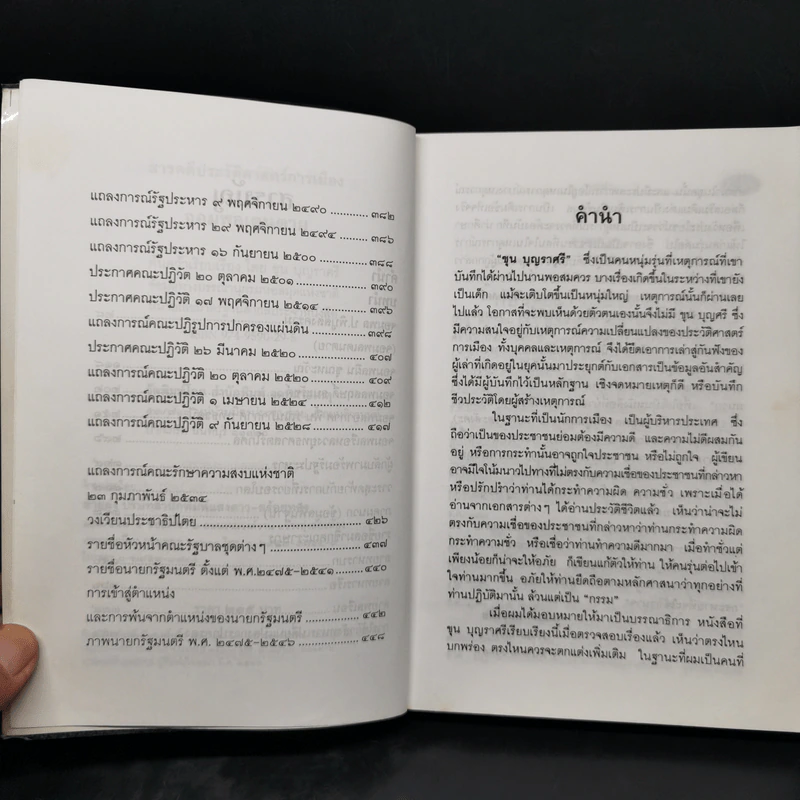 แถลงการณ์รัฐประหาร ๙ พฤศจิกายน ๒๔๙๐ ............ ๓๘๒
แถลงการณ์รัฐประหาร ๒๙ พฤศจิกายน ๒๔๙๔ .......... ๓๘๖
แถลงการณ์รัฐประหาร ๑๖ กันยายน ๒๕๐๐ ............. ๓๘๘
ประกาศคณะปฏิวัต ๒๐ ตุลาคม ๒๕๐๑ ................... ๓๙๐
ประกาศคณะปฏิวัติ ๑๗ พฤศจิกายน ๒๕๑๔ .............. ๓๙๖
แถลงการณ์คณะปฏิรูปการปกครองแผ่นดิน ............... ๓๙๘
ประกาศคณะปฏิวัติ ๒๖ มีนาคม ๒๕๒๐ .................. ๔๐๗
แถลงการณ์คณะปฏิวัติ ๒๐ ตุลาคม ๒๕๒๐ ............... ๔๐๙
แถลงการณ์คณะปฏิวัติ ๑ เมษายน ๒๕๒๔ ................ ๔๑๒
แถลงการณ์คณะปฏิวัติ ๙ กันยายน ๒๕๒๘ ............... ๔๑๗
แถลงการณ์คณะรักษาความสงบแห่งชาติ
๒๓ กุมภาพันธ์ ๒๕๓๔
วงเวียนประชาธิปไตย ........................................ ๔๒๖
รายชื่อหัวหน้าคณะรัฐบาลชุดต่างๆ ......................... ๔๓๗
รายชื่อนายกรัฐมนตรี ตั้งแต่ พ.ศ.๒๔๗๕-๒๕๔๑ ......... ๔๔๐
การเข้าสู่ตำแหน่ง
และการพ้นจากตำแหน่งของนายกรัฐมนตรี ............... ๔๔๒
ภาพนายกรัฐมนตรี พ.ศ. ๒๔๗๕-๒๕๔๖ ................. ๔๔๘
คำนำ
"ขุน บุญราศรี" ซึ่งเป็นคนหนุ่มรุ่นที่เหตุการณ์ที่เขา
บันทึกได้ผ่านไปนานพอสมควร บางเรื่องเกิดขึ้นในระหว่างที่เขายัง
เป็นเด็ก แม้จะเติบโตขึ้นเป็นหนุ่มใหญ่ เหตุการณ์นั้นก็ผ่านเลย
ไปแล้ว โอกาสที่จะพบเห็นด้วยตัวตนเองนั้นจึงไม่มี ขุน บุญศรี ซึ่ง
มีความสนใจอยู่กับเหตุการณ์ความเปลี่ยนแปลงของประวัติศาสตร์
การเมือง ทั้งบุคคลและเหตุการณ์ จึงได้ยึดเอาการเล่าสู่กันฟังของ
ผู้เล่าที่เกิดอยู่ในยุคนั้นมาประยุกต์กับเอกสารเป็นข้อมูลอันสำคัญ
ซึ่งได้มีผู้บันทึกไว้เป็นหลักฐาน เชิงจดหมายเหตุก็ดี หรือบันทึก
ชีวประวัติโดยผู้สร้างเหตุการณ์
ในฐานะที่เป็นนักการเมือง เป็นผู้บริหารประเทศ ซึ่ง
ถือว่าเป็นของประชาชนย่อมต้องมีความดี และความไม่ดีผสมกัน
อยู่ หรือการกระทำนั้นอาจถูกใจประชาชน หรือไม่ถูกใจ ผู้เขียน
อาจมีใจโน้มนาวไปทางที่ไม่ตรงกับความเชื่อของประชาชนที่กล่าวหา
หรือปรักปรำว่าท่านได้กระทำความผิด ความชั่ว เพราะเมื่อได้
อ่านจากเอกสารต่างๆ ได้อ่านประวัติชีวิตแล้ว เห็นว่าน่าจะไม่
ตรงกับความเชื่อของประชาชนที่กล่าวหาว่าท่านกระทำความผิด
กระทำความชั่ว หรือเชื่อว่าท่านทำความดีมากมา เมื่อทำชั่วแต่
เพียงน้อยก็น่าจะให้อภัย ก็เขียนแก้ตัวให้ท่าน ให้คนรุ่นต่อไปเข้า
ใจท่านมากขึ้น อภัยให้ท่านยึดถือตามหลักศาสนาว่าทุกอย่างที่
ท่านปฏิบัติมานั้น ล้วนแต่เป็น "กรรม"
เมื่อผมได้มอบหมายให้มาเป็นบรรณาธิการ หนังสือที่
ขุน บุญราศรีเรียบเรียงนี้เมื่อตรวจสอบเรื่องแล้ว เห็นว่าตรงไหน
บกพร่อง ตรงไหนควรจะตกแต่งเพิ่มเติม ในฐานะที่ผมเป็นคนที่